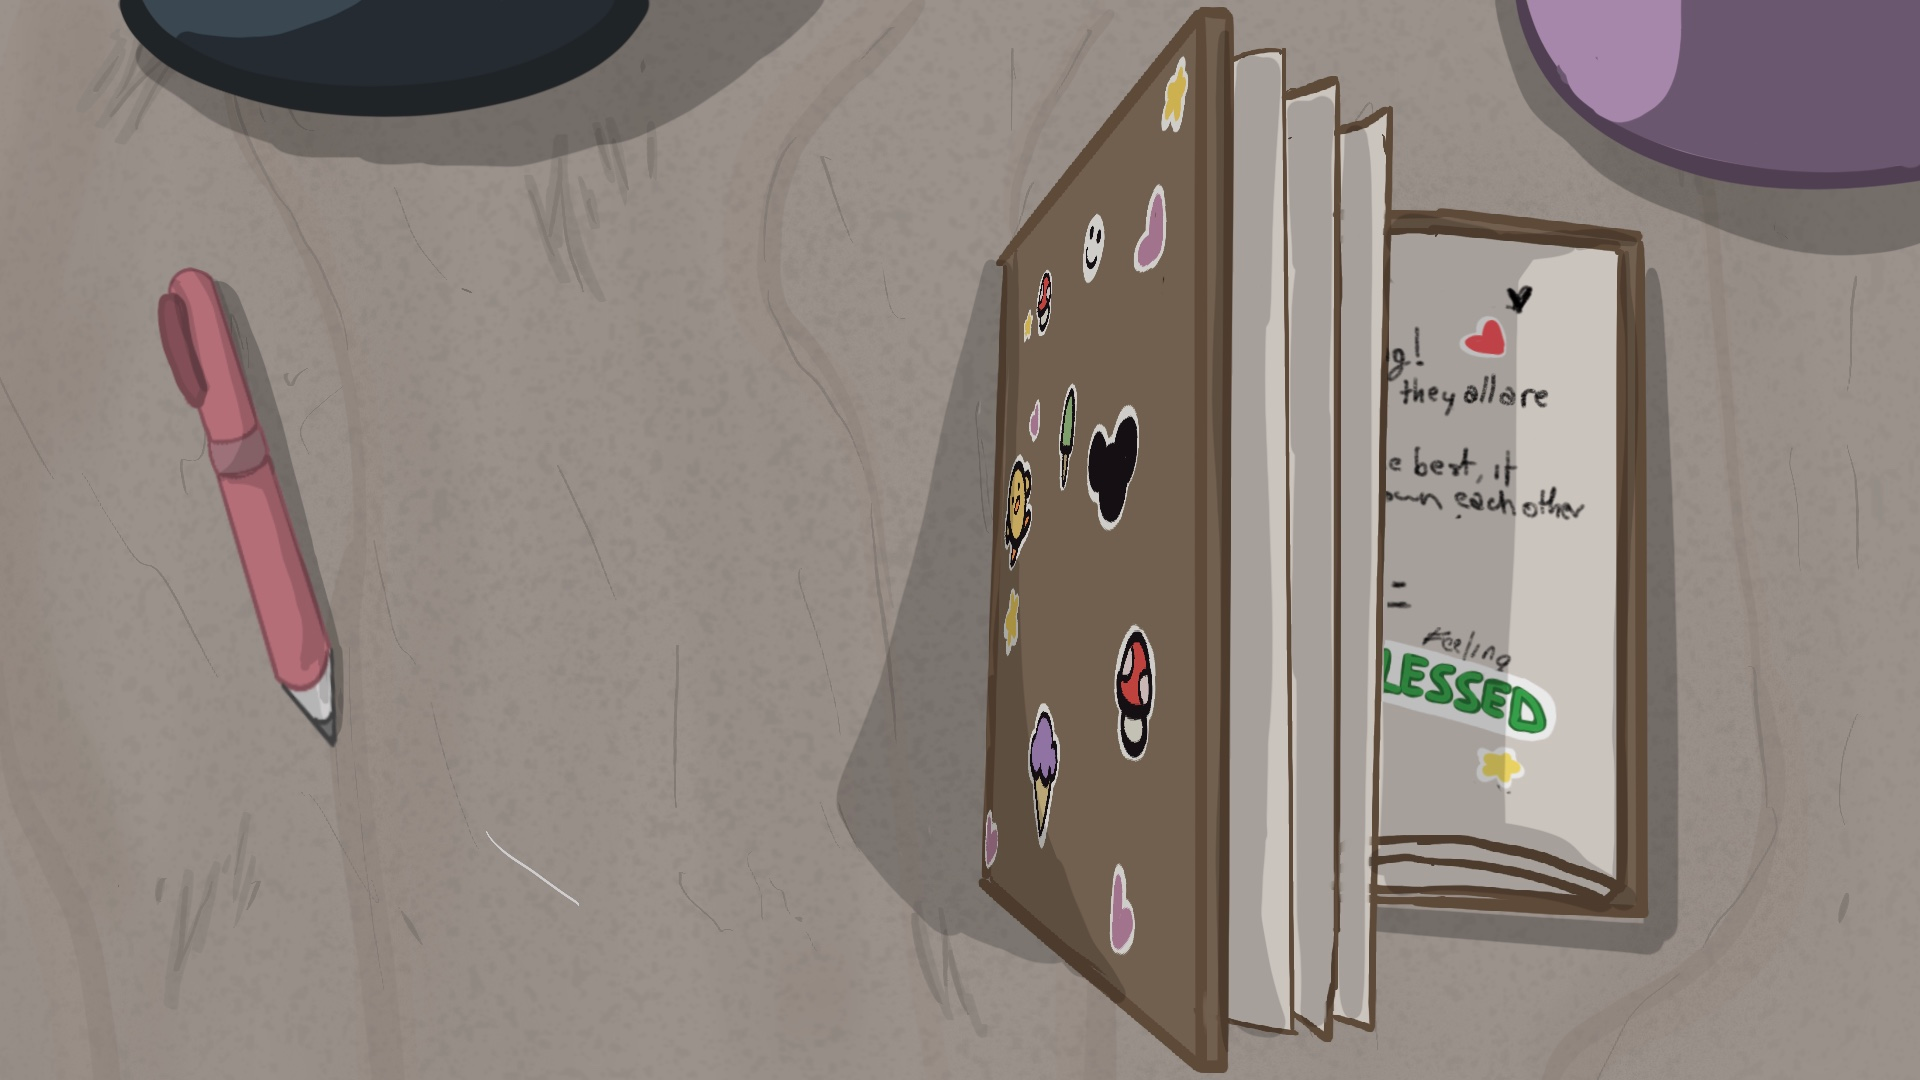 g!
they all are
e best, it
own each other
=
Feeling
LESSED